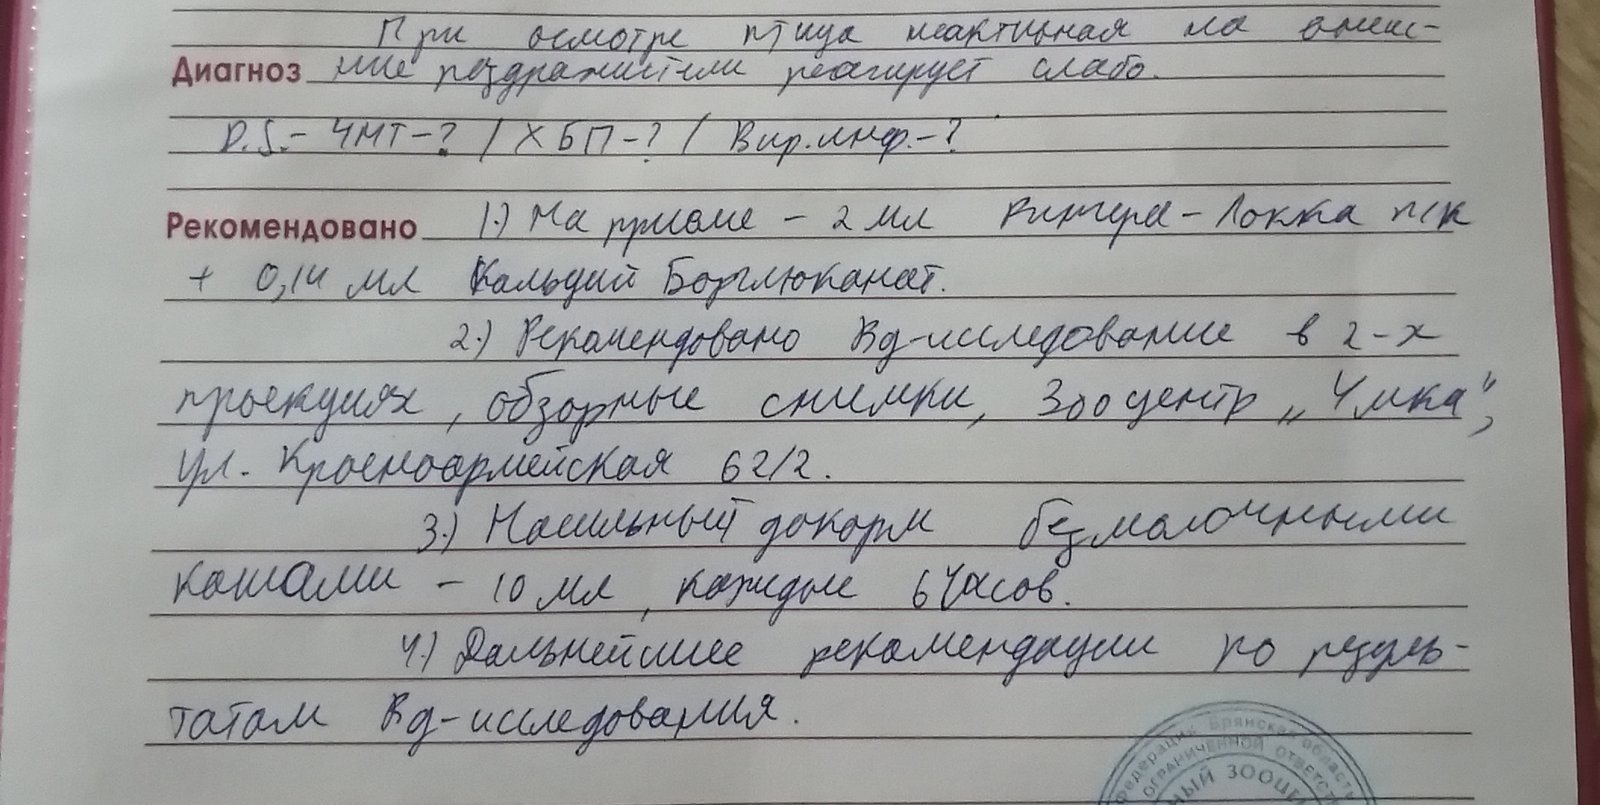 При осмотре птица неактивная на внеш-
Диагноз ние раздражители реагирует слабо.
D.S.- ЧМТ-? / ХБП-? / Вир.инф.-?
Рекомендовано 1.) На приеме - 2 мл Рингера-Локка п/к
+ 0,14 мл Кальций Борглюканат.
2.) Рекомендовано Rg-исследование в 2-х
проекциях, обзорные снимки, Зооцентр „Умка",
ул. Красноармейская 62/2.
3.) Насильный докорм безмолочными
кашами - 10 мл, каждые 6 часов.
4.) Дальнейшие рекомендации по резуль-
татам Rg-исследования.
Федерация Брянская область
ОГРАНИЧЕННОЙ ОТВЕТСТ
НЫЙ ЗООЦЕН